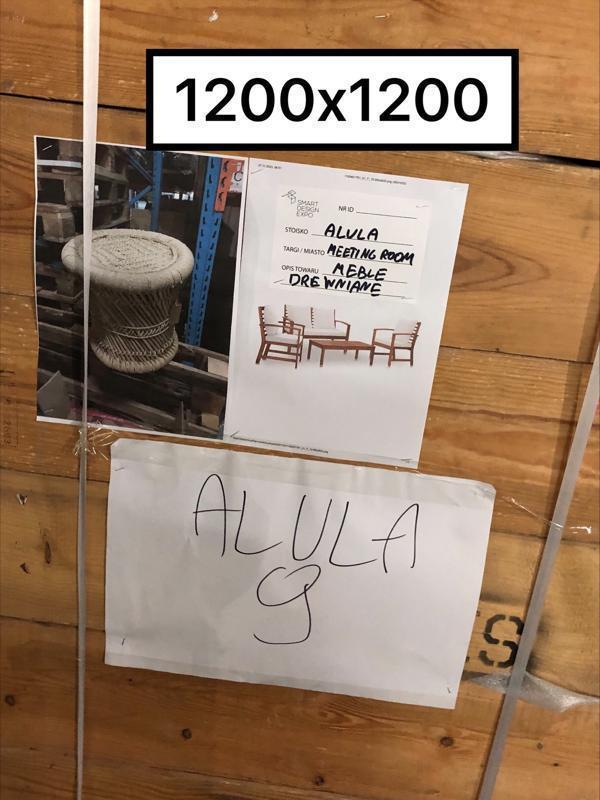 1200x1200
SMART
DESIGN
EXPO
NR ID
STOISKO ALULA
TARGI / MIASTO MEETING ROOM
OPIS TOWARU MEBLE
DREWNIANE
ALULA
9
S